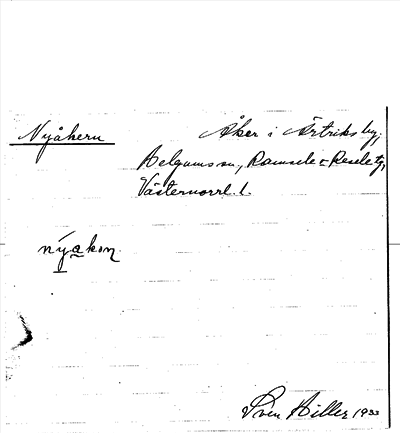 Nyåkern
Åker i Ärtriks by,
Helgums sn, Ramsele o Resele tg,
Västernorrl. l.
nýakon
Sven Hiller 1933